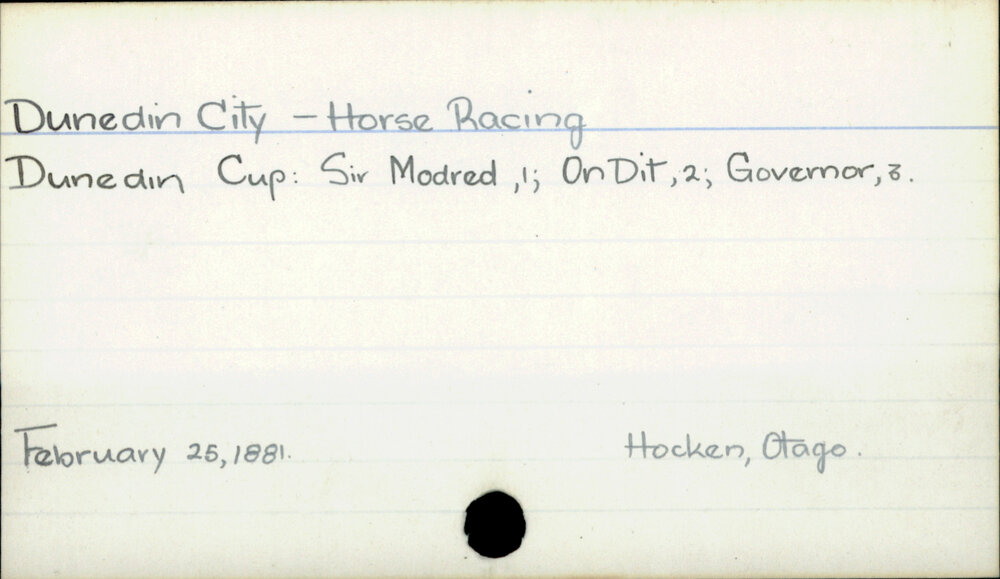 Dunedin City – Horse Racing
Dunedin Cup: Sir Modred ,1; On Dit, 2; Governor, 3.
February 25, 1881.
Hocken, Otago.